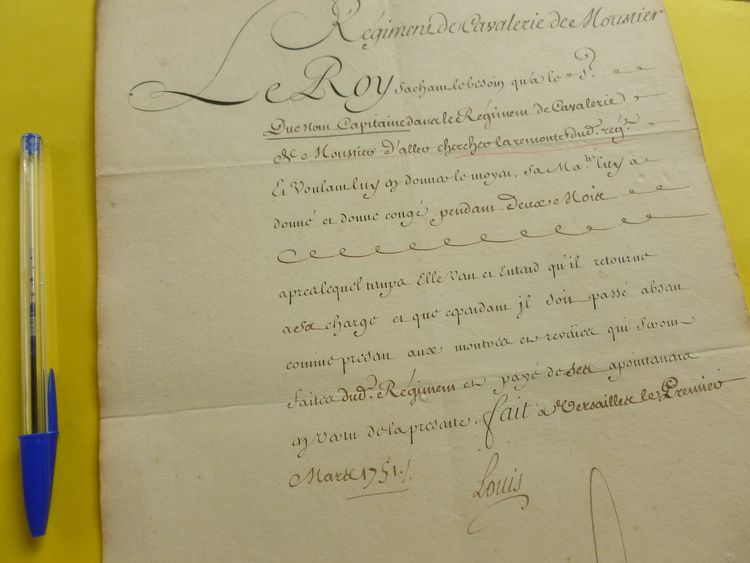 Régiment de Cavalerie de Moustier
Le Roy sachant le besoin qu'a le S.r
Duenom Capitaine dans le Régiment de Cavalerie
de Moustier d'aller chercher la remonte dud.t reg.t
Et Voulant luy en donner le moyen, Sa Ma.té luy a
donné et donne congé pendant Deux Mois
apres lequel temps Elle Veut et Entend qu'il retourne
a sa charge et que cependant jl soit passé absent
comme present aux montres et reveües qui seront
faites dud.t Régiment et payé de ses apointemens
en Vertu de la presente. fait à Versailles le Premier
Mars 1751./.
Louis